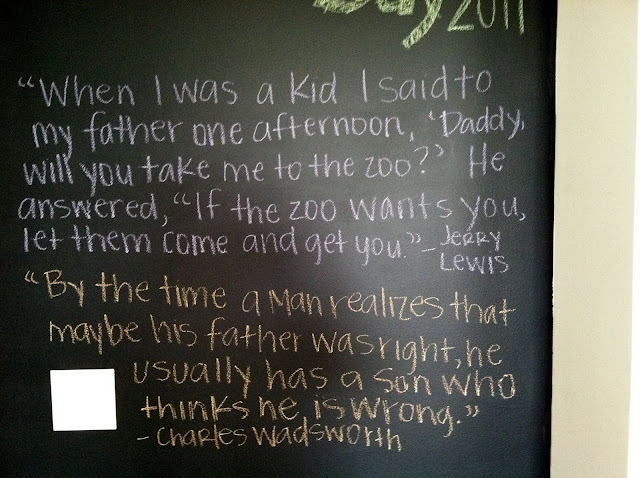 Day 2011
“When I was a kid I said to
my father one afternoon, ‘Daddy,
will you take me to the zoo?’ He
answered, “If the zoo wants you,
let them come and get you.” – Jerry
Lewis
“By the time a Man realizes that
maybe his father was right, he
usually has a son who
thinks he is wrong.”
- Charles Wadsworth